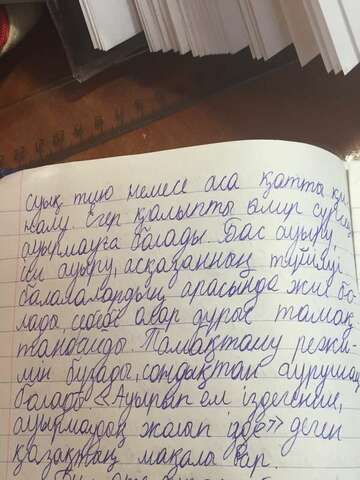 суық тию немесе аса қатты қи
налу. Егер қалыпты өмір сүрсең
ауырмауға болады. Бас ауыру,
іш ауыру, асқазанның түйілуі
балалалардың арасында жиі бо
лады, себебі олар дұрыс тамақ
танбайды. Тамақтану режи-
мін бұзады, сондықтан аурулар
болады. «Ауырып ем іздегенше,
ауырмаудың жолын ізде» деген
қазақтың мақалы бар.